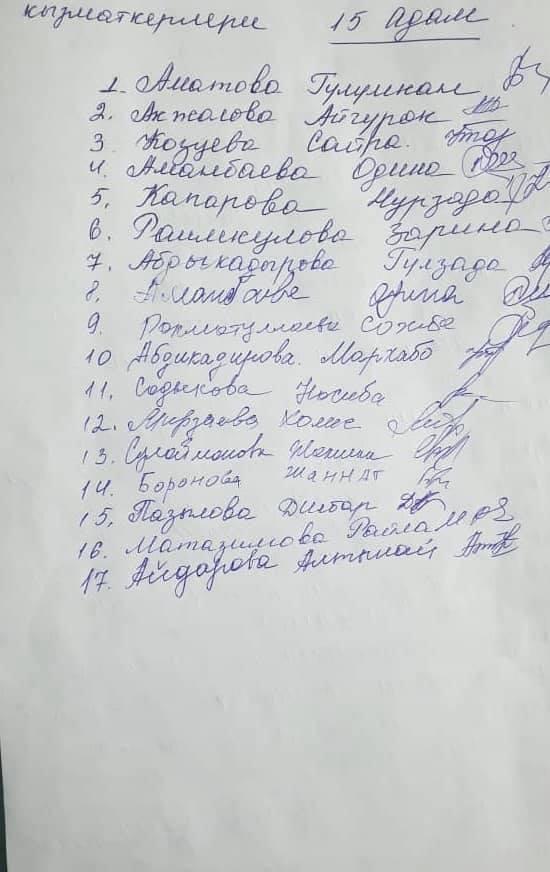 кызматкерлери 15 адам
1. Аматова Гулумкан
2. Акжалова Айгурок
3. Козуева Сайра.
4. Аманбаева Одина
5. Капарова Нурзада
6. Раимкулова Зарина
7. Абдыкадырова Гулзада
8. Аманбаева Одина
9. Рахматуллаева
10 Абдикадирова. Мархабо
11. Содыкова Носиба
12. Мирзаева
13. Сулаймонова
14. Боронова Жаннат
15. Пазылова Дилбар
16. Матазимова Райла
17. Айдарова Алтынай